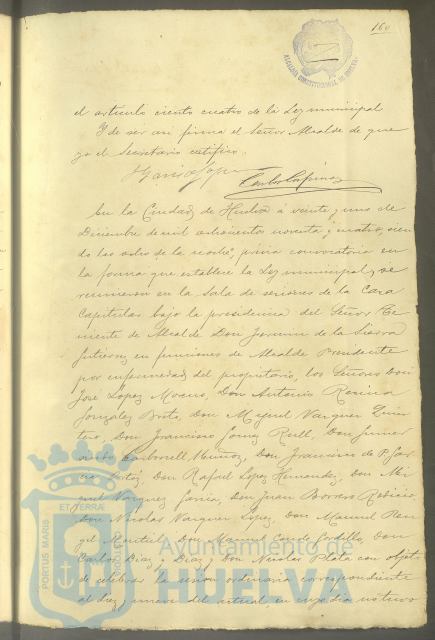 160
ALCALDÍA CONSTITUCIONAL DE HUELVA
el artículo ciento cuatro de la Ley municipal
Y de ser así firma el Señor Alcalde de que
yo el Secretario certifico.
En la Ciudad de Huelva á veinte y uno de
Diciembre de mil ochocientos noventa y cuatro, sien
do las ocho de la noche, prévia convocatoria en
la forma que establece la Ley municipal, se
reunieron en la Sala de sesiones de la Casa
Capitular bajo la presidencia del Señor Te
niente de Alcalde Don de la Sierra
Gutierrez en funciones de Alcalde Presidente
por enfermedad del propietario, los Señores Don
José López Moreno, Don Antonio
Gonzalez Brito, Don Miguel Vazquez Quin
tero, Don Francisco Rull, Don
Carbonell Muñoz, Don Francisco de P. Gar
cia Don Rafael López Hernandez, Don Mi
guel Vazquez García, Don Juan Borrero
Don Nicolas Vazquez López, Don Manuel Ran
gel Don Manuel Conde Gordillo, Don
Carlos Diaz y Diaz y Don Nicolas Plata con objeto
de celebrar la sesion ordinaria correspondiente
al diez y nueve del actual en cuyo dia no tuvo
PORTUS MARIS
ET TERRÆ
Ayuntamiento de
HUELVA